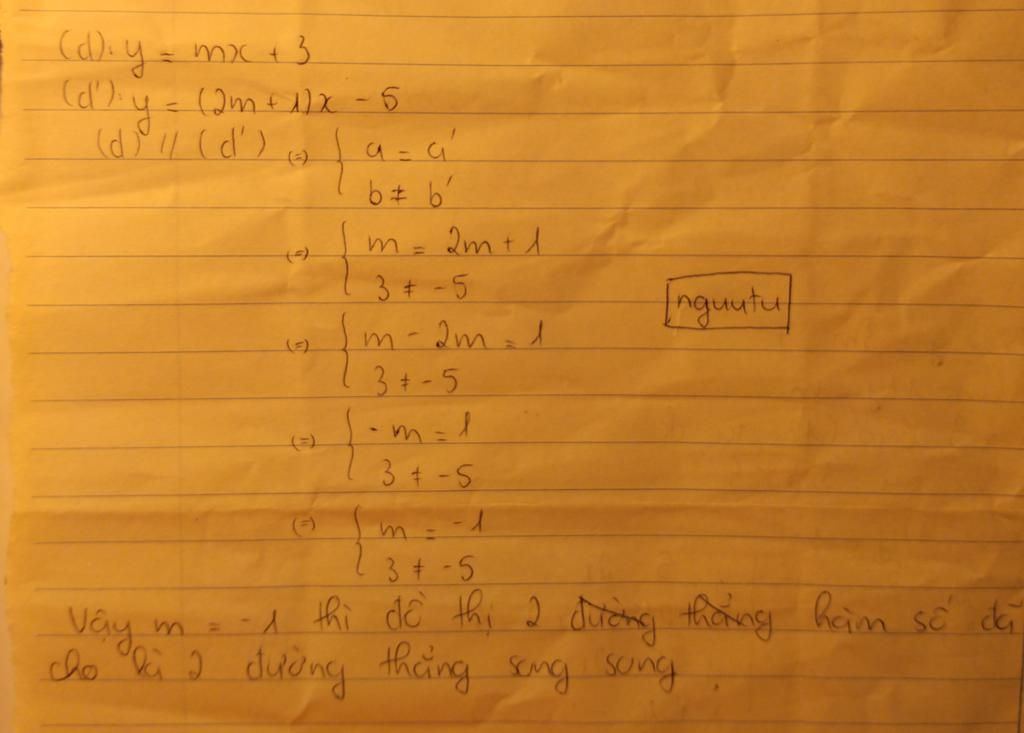 (d): y = mx + 3
(d'): y = (2m + 1)x - 5
(d) // (d') (=) { a = a'
b ≠ b'
(=) { m = 2m + 1
3 ≠ -5
nguutu
(=) { m - 2m = 1
3 ≠ -5
(=) { -m = 1
3 ≠ -5
(=) { m = -1
3 ≠ -5
Vậy m = -1 thì đồ thị 2 đường thẳng hàm số đã
cho là 2 đường thẳng song song.